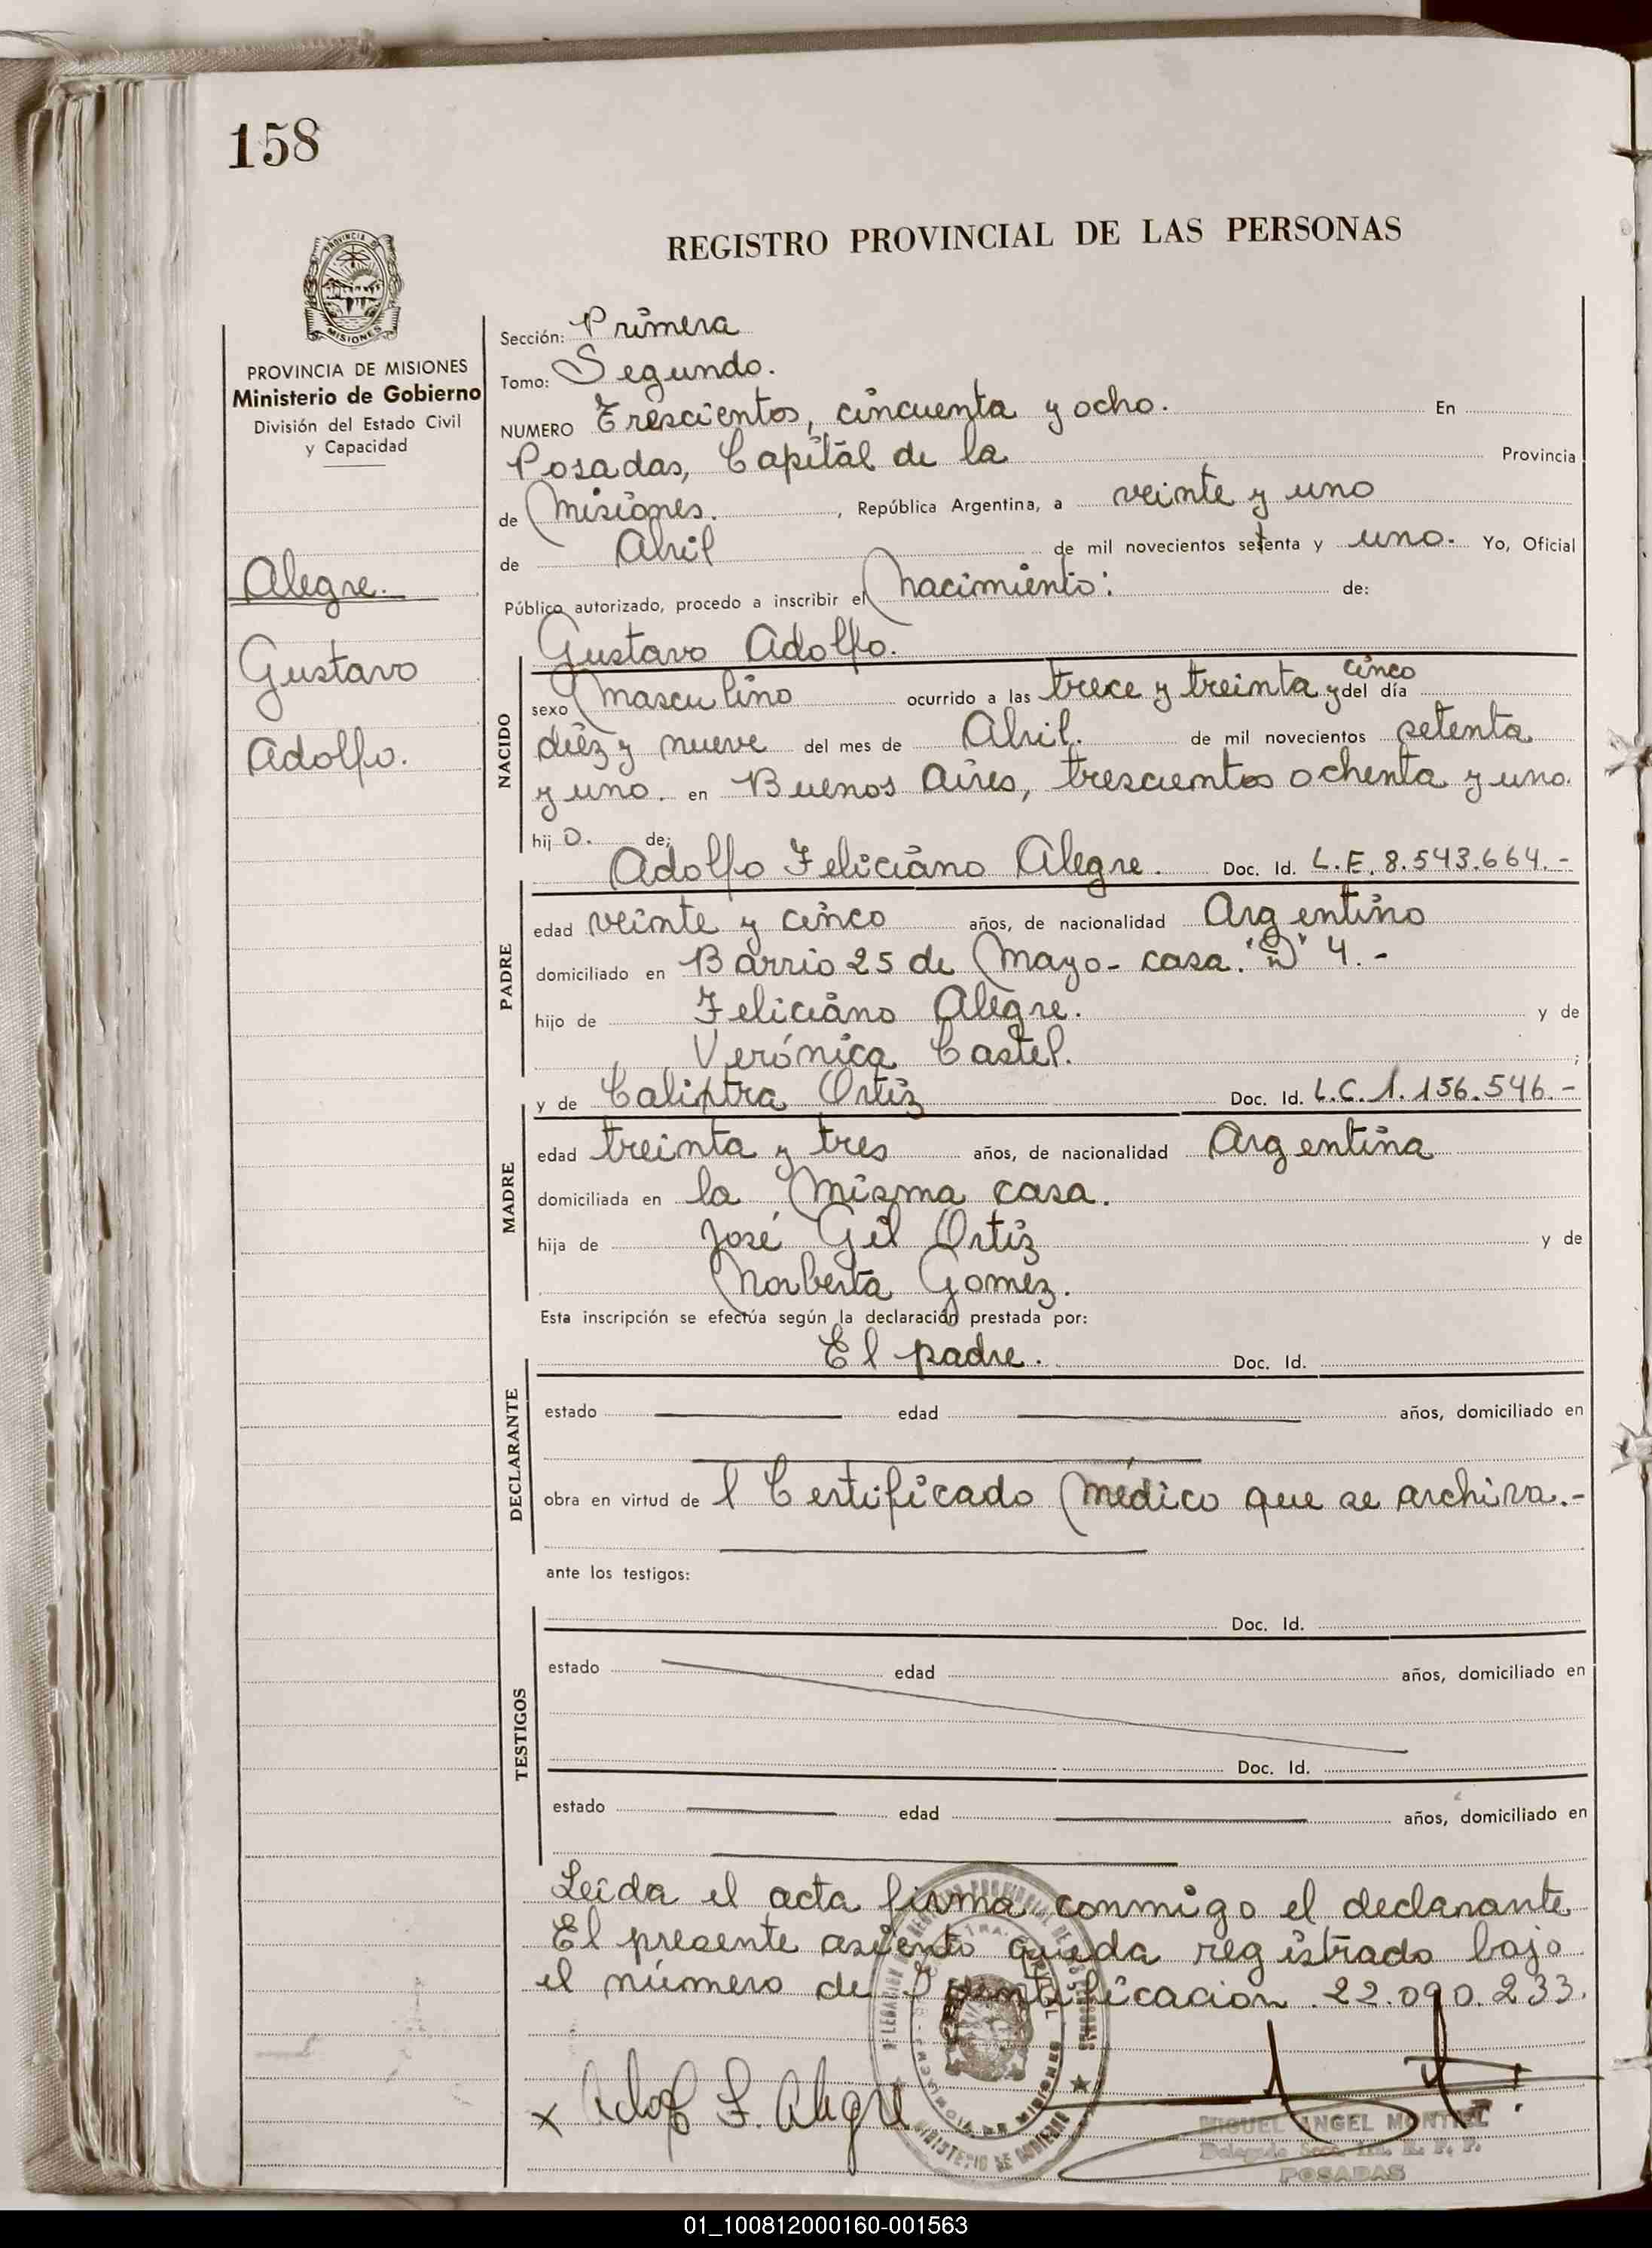 158
REGISTRO PROVINCIAL DE LAS PERSONAS
PROVINCIA DE
MISIONES
PROVINCIA DE MISIONES
Ministerio de Gobierno
División del Estado Civil
y Capacidad
Alegre.
Gustavo
Adolfo.
Sección: Primera
Tomo: Segundo.
NUMERO Trescientos, cincuenta y ocho. En
Posadas, Capital de la Provincia
de Misiones. , República Argentina, a veinte y uno
de Abril de mil novecientos setenta y uno. Yo, Oficial
Público autorizado, procedo a inscribir el Nacimiento: de:
Gustavo Adolfo.
NACIDO
sexo masculino ocurrido a las trece y treinta y cinco del día
diéz y nueve del mes de Abril. de mil novecientos setenta
y uno. en Buenos Aires, trescientos ochenta y uno.
hij o. de;
Adolfo Feliciano Alegre. Doc. Id. L.E. 8.543.664.-
PADRE
edad veinte y cinco años, de nacionalidad Argentino
domiciliado en Barrio 25 de Mayo- casa. 4.-
hijo de Feliciano Alegre. y de
Verónica Castel. ;
y de Caliptra Ortiz Doc. Id. L.C. 1.156.546.-
MADRE
edad treinta y tres años, de nacionalidad Argentina
domiciliada en la misma casa.
hija de José Gil Ortiz y de
Norberta Gomez.
Esta inscripción se efectúa según la declaración prestada por:
El padre. Doc. Id.
DECLARANTE
estado edad años, domiciliado en
obra en virtud de l Certificado Médico que se archiva.-
ante los testigos:
Doc. Id.
TESTIGOS
estado edad años, domiciliado en
Doc. Id.
estado edad años, domiciliado en
Leída el acta firma conmigo el declarante
El presente asiento queda registrado bajo
el número de Identificacion 22.090.233.
x Adolf F. Alegre
MINISTERIO DE GOBIERNO
MIGUEL ANGEL MONTIEL
POSADAS
01_100812000160-001563